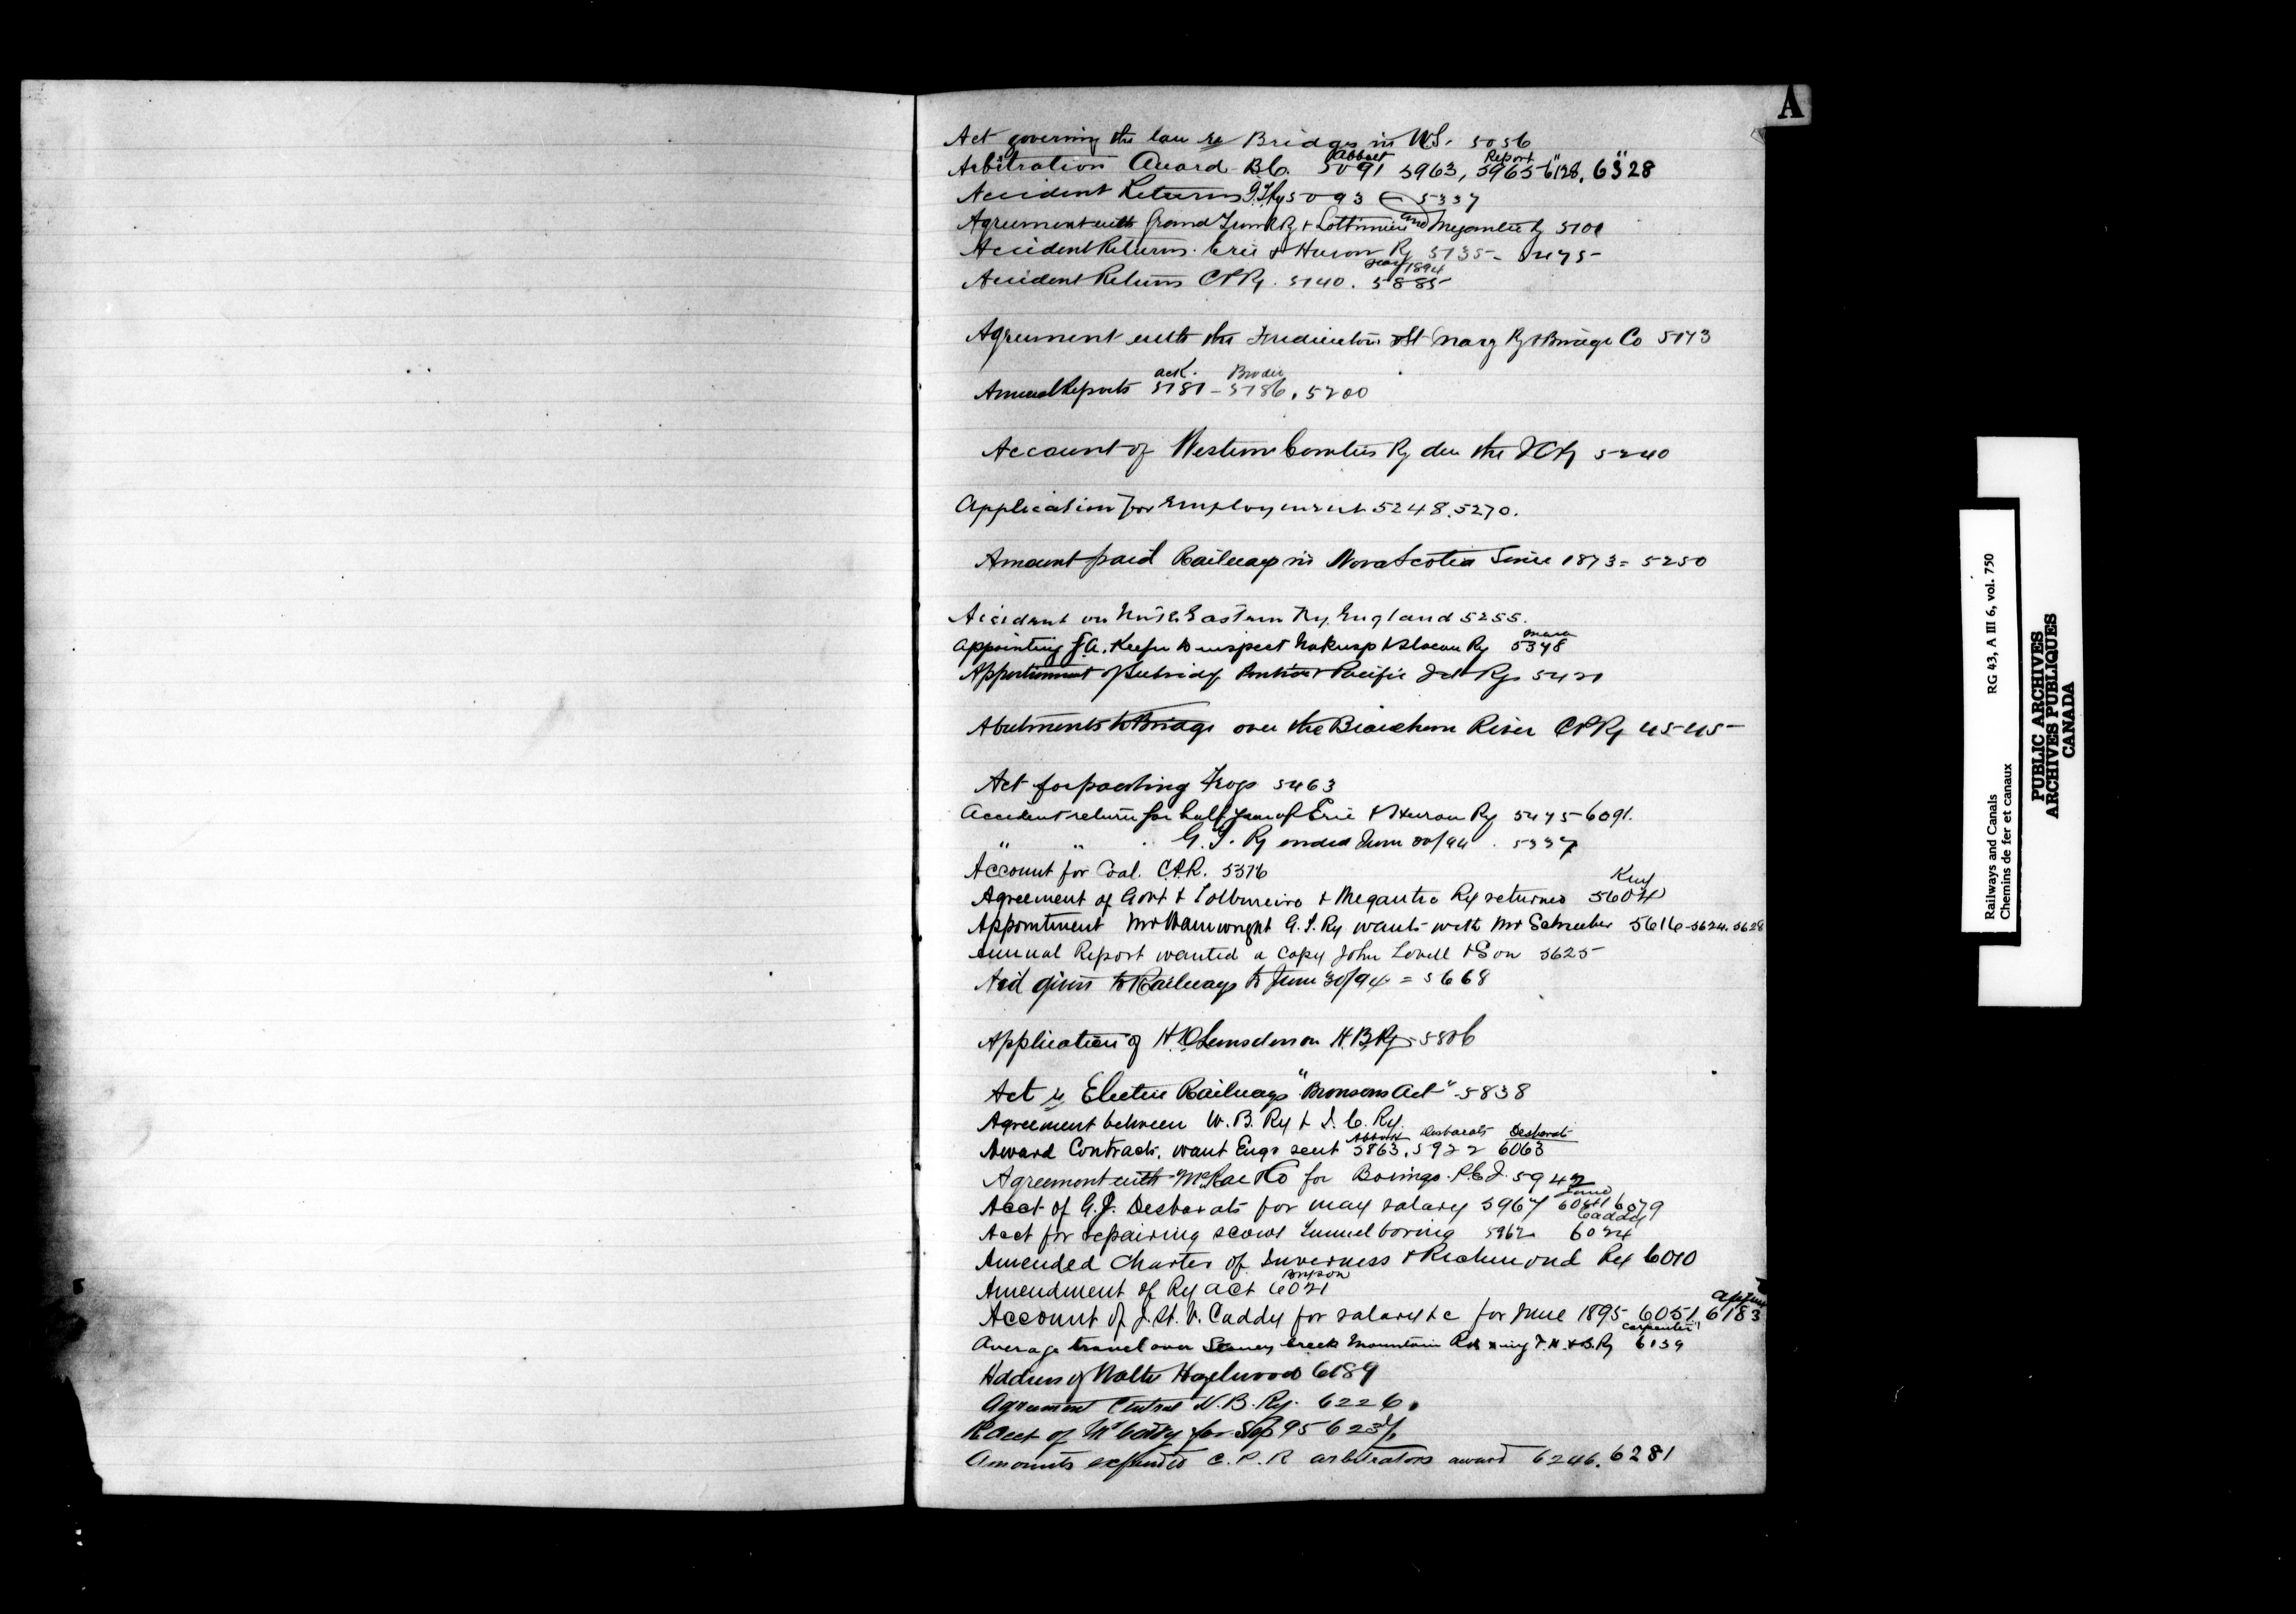 A
Act governing the law re Bridges in N.S. 5056
Abbott Report " "
Arbitration Award B.C. 5091 5963, 5965 6128, 6328
Accident Returns G.T.Ry 5093 5337
Agreement with Grand Trunk Ry + Lotbiniere and Megantic Ry 5101
Accident Returns Erie & Huron Ry 5135 - 5475
1894
Accident Returns CPRy. 5140. 5885
Agreement with the Fredericton & St Mary Ry & Bridge Co 5173
ack. Brodie
Annual Reports 5181 - 5186, 5200
Account of Western Counties Ry due the ICRy 5240
Application for Employment 5248, 5270.
Amount paid Railways in Nova Scotia Since 1873 = 5250
Accident on North Eastern Ry. England 5255.
Mara
Appointing Keefer to inspect Nakusp & Slocan Ry 5348
Apportionment of Subsidy Pontiac & Pacific Jct Ry 5421
Abutments to Bridge over the River CPRy 4545
Act for packing Frogs 5463
Accident return for half year of Erie & Huron Ry 5475-6091.
" " G.T. Ry ended June 30/94. 5337
Account for Coal. C.A.R. 5376
Agreement of Govt & Lotbiniere & Megantic Ry returned 5604
Appointment Mr Wainwright G.T.Ry wants with Mr Schreiber 5616-5624. 5628
Annual Report wanted a copy John Lovell & Son 5625
Aid given to Railways to June 30/94 = 5668
Application of Lumsden on H.B.Ry 5806
Act re Electric Railways "Bronsons Act" 5838
Agreement between W.B. Ry & I.C. Ry.
Abbott Desbarats Desbarats
Award Contract. want Engr sent 5863, 5922 6063
Agreement with McRae & Co for Borings. P.E.I. 5942
June
Acct of G.J. Desbarats for may salary 5967 6041 6079
Caddy
Acct for repairing scows tunnel boring 5962 6024
Amended Charter of Inverness & Richmond Ry 6010
Amendment of Ry act 6021
Account of J. St. V. Caddy for salary &c for June 1895 6051, 6183
Carpenter
Average travel over Stoney Creek Mountain Rd xing T.H.&B.Ry 6139
Address of Walter Hazelwood 6189
Agreement Central N.B. Ry. 6226.
Acct of for Sep 95
Amounts expended C.P.R arbitrators award 6246. 6281
Railways and Canals RG 43, A III 6, vol. 750
Chemins de fer et canaux
PUBLIC ARCHIVES
ARCHIVES PUBLIQUES
CANADA